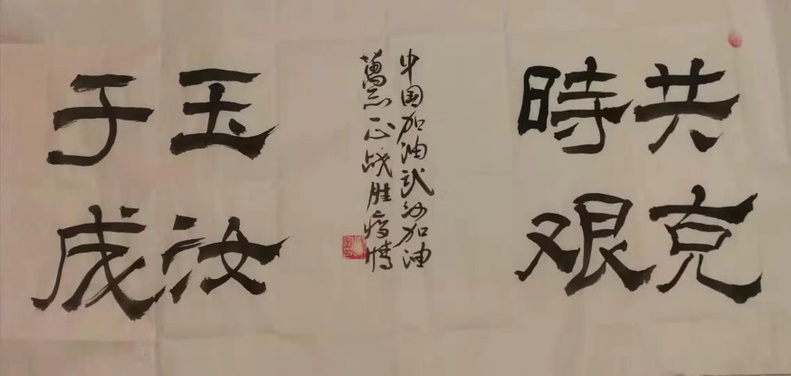 共克
時艰
中国加油武汉加油
萬众一心战胜疫情
玉汝
于成